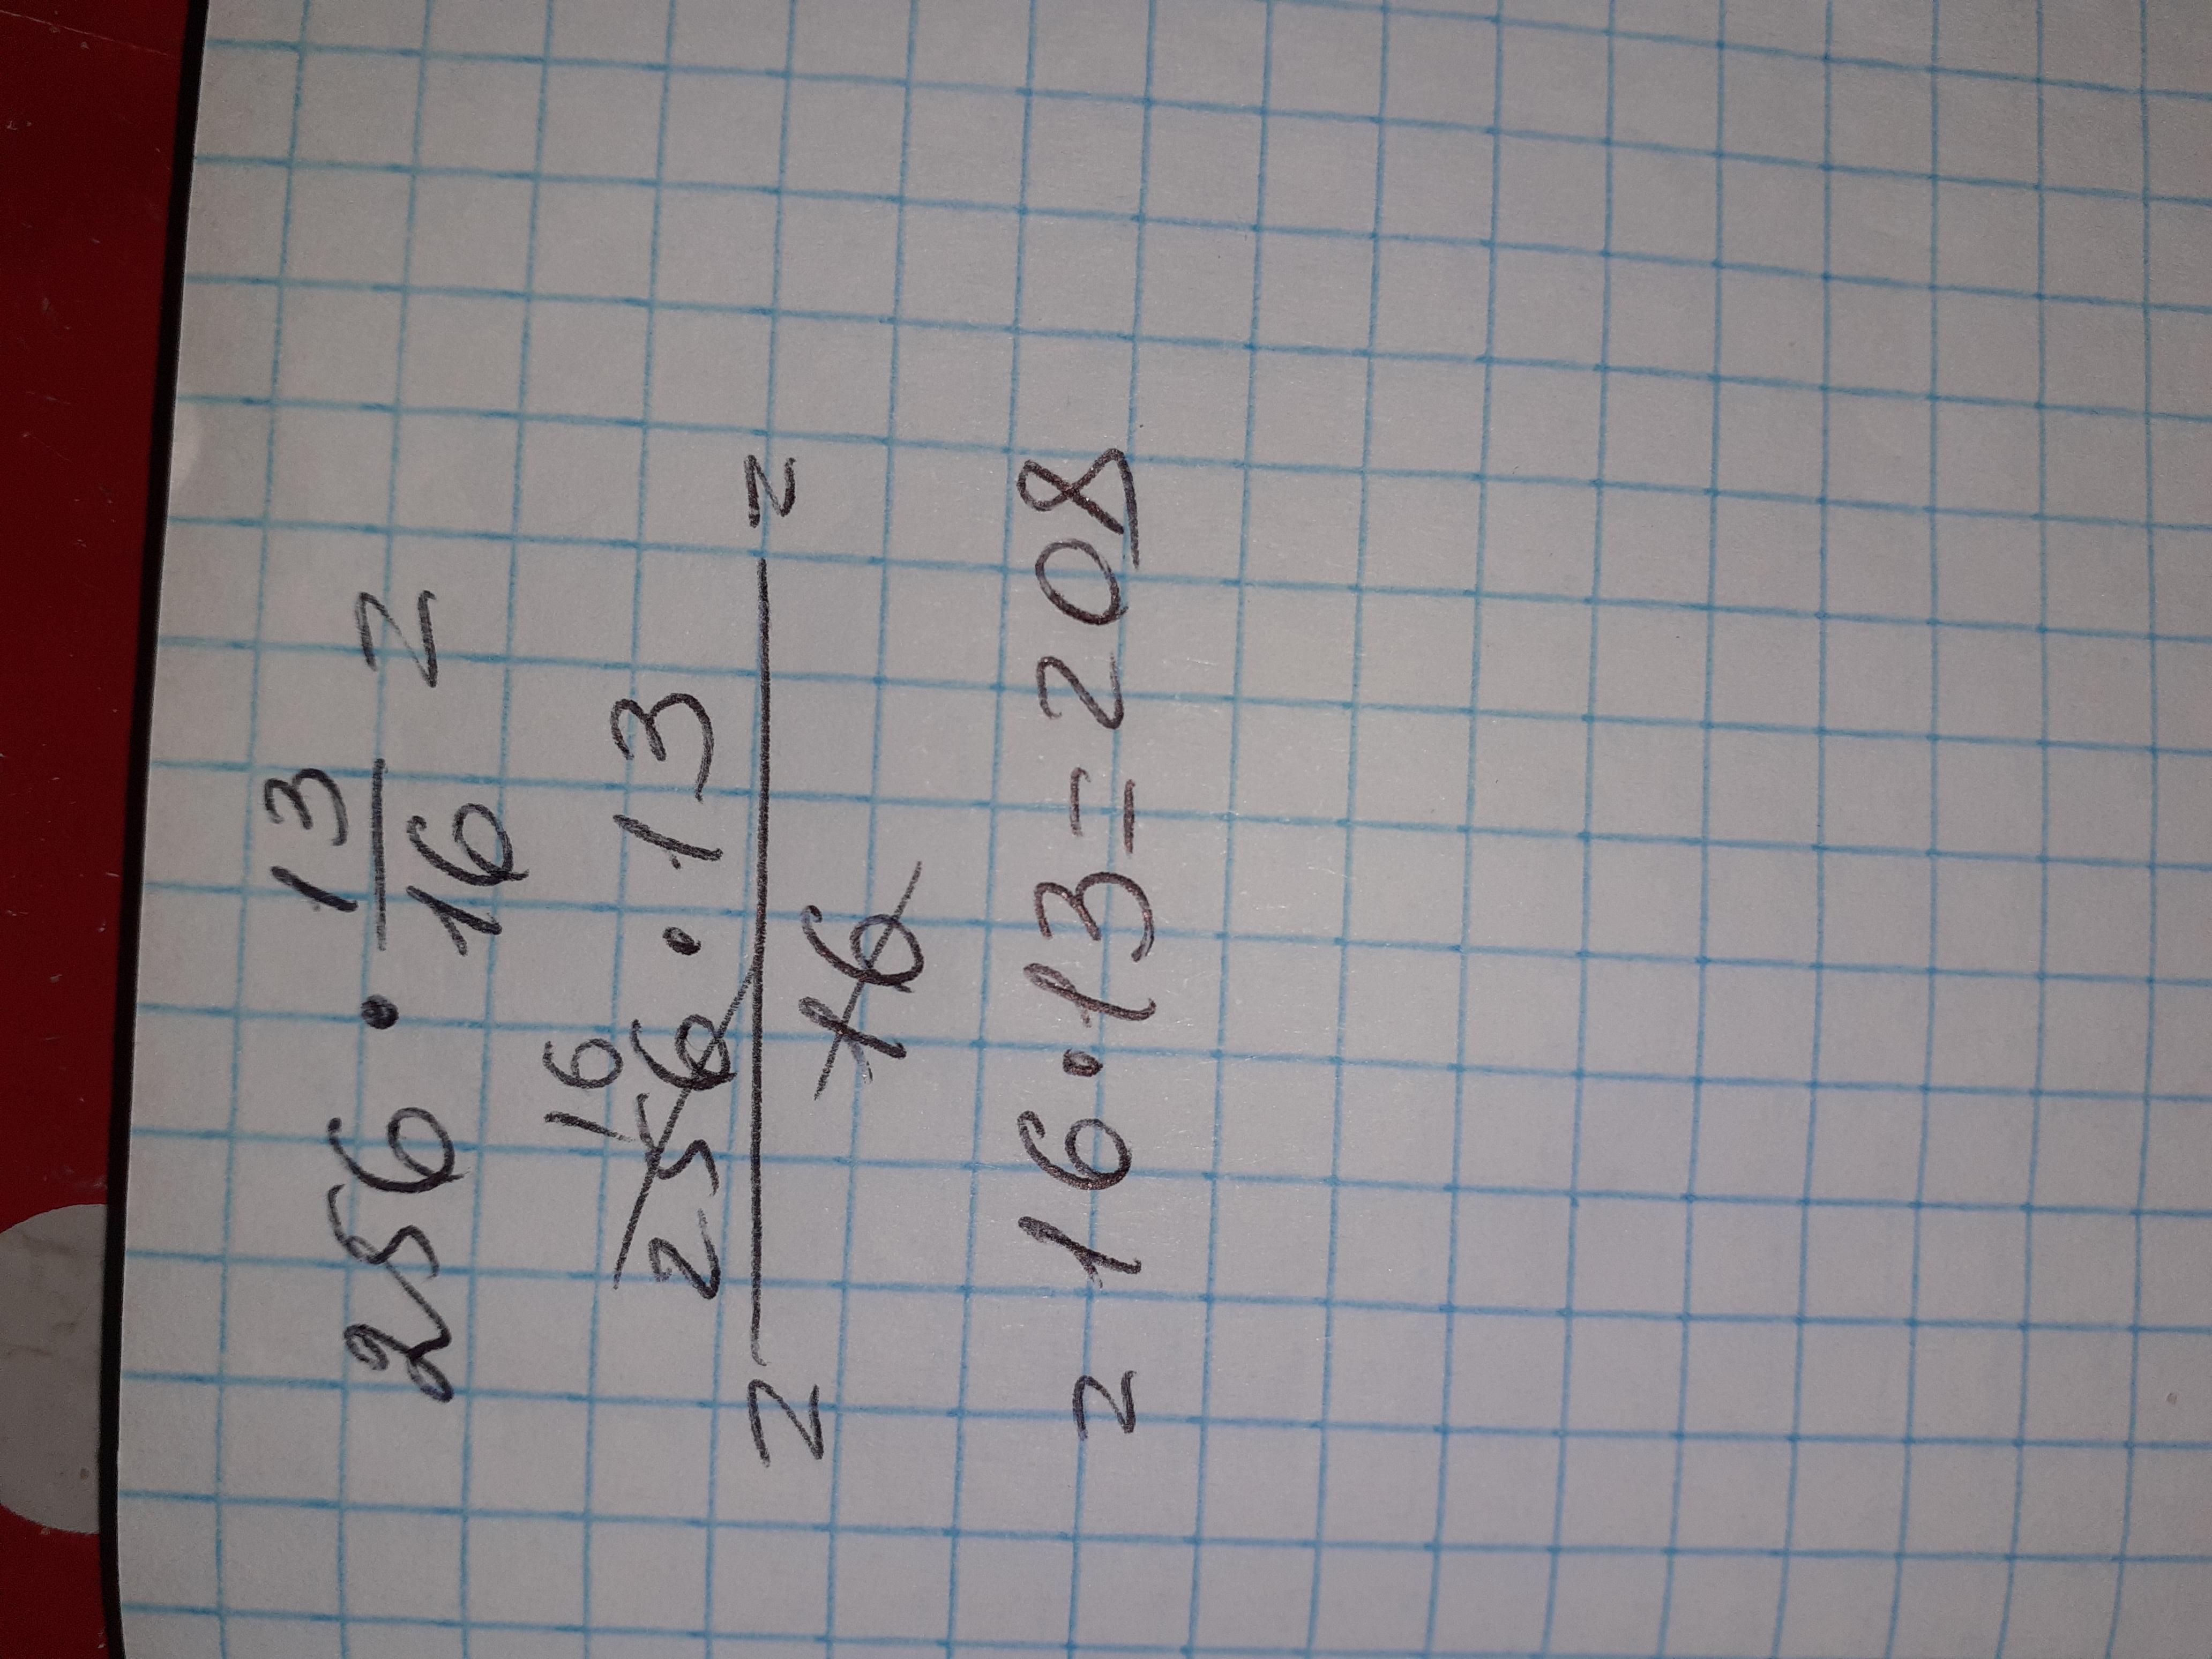 256 · 13/16 =
= 256 · 13 / 16 =
16
= 16 · 13 = 208